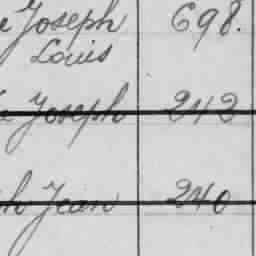 e Joseph 698.
Louis
e Joseph 243
h Jean 240